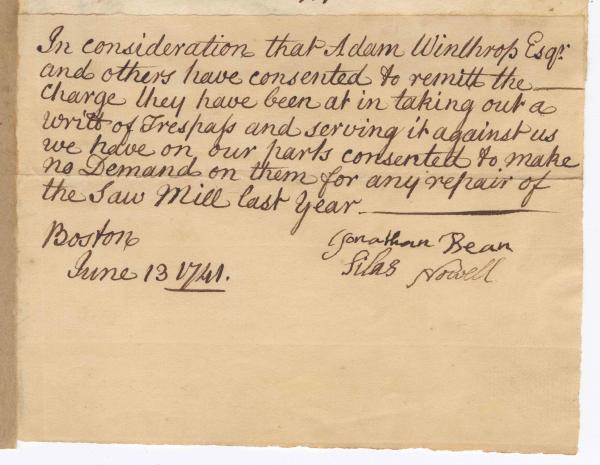 In consideration that Adam Winthrop Esqr.
and others have consented to remitt the
charge they have been at in taking out a
writt of Trespass and serving it against us
we have on our parts consented to make
no Demand on them for any repair of
the Saw Mill last Year
Boston
June 13 1741.
Jonathan Bean
Silas Nowell